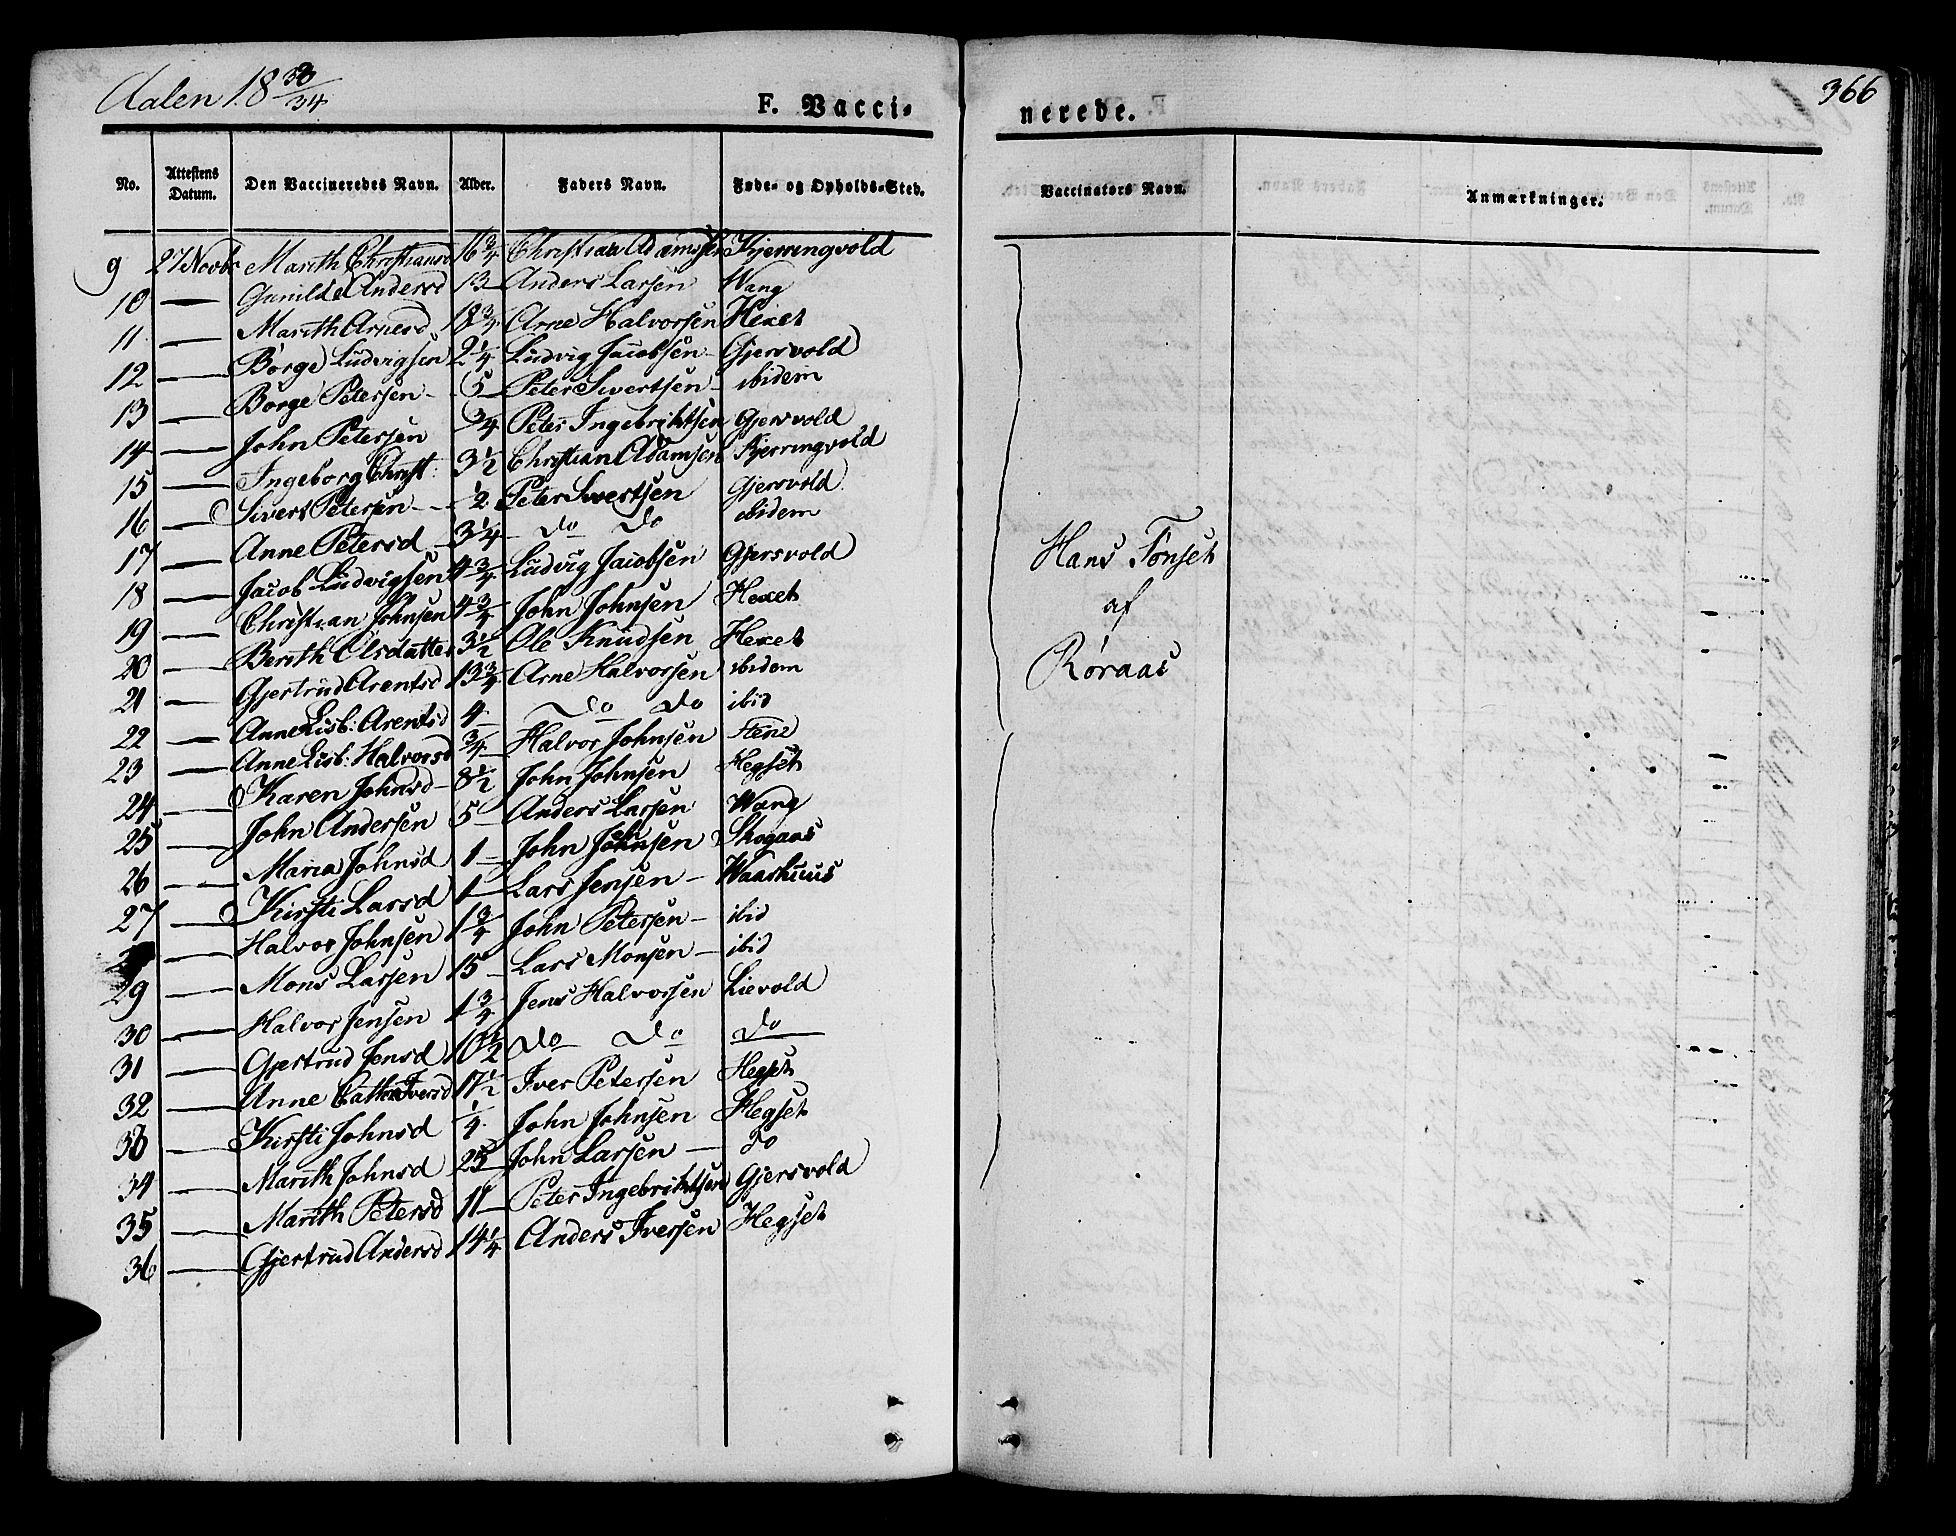 Aalen 18 33/34
F. Vacci-
nerede.
366
No. Attestens Datum. Den Vaccineredes Navn. Alder. Faders Navn. Føde- og Opholds-Sted. Vaccinators Navn. Anmærkninger.
9 27 Novbr Marith Christiansd 16 3/4 Christian Adamsen Kjerringvold
10 — Gunilde Andersd 13 — Anders Larsen Wang
11 — Marith Arnesd 18 3/4 Arne Halvorsen Hexet
12 — Börge Ludvigsen 2 1/4 Ludvig Jacobsen — Gjersvold
13 — Borge Petersen — 5 — Peter Sivertsen — ibidem
14 — John Petersen 3/4 Peter Ingebriktsen Gjersvold
15 — Ingeborg Christ: 3 1/2 Christian Adamsen Kjerringvold
16 — Sivert Petersen — 1/2 Peter Sivertsen Gjersvold
17 — Anne Petersd 3 1/4 — Do Do ibidem
18 — Jacob Ludvigsen 4 3/4 Ludvig Jacobsen Gjersvold
19 — Christian Johnsen 4 3/4 John Johnsen Hexet
20 — Berith Olsdatter 3 1/2 Ole Knudsen Hexet
21 — Gjertrud Arentsd 13 3/4 Arne Halvorsen ibidem
22 — Anne Lisb: Arentsd 4 — Do Do ibid
23 — Anne Lisb: Halvorsd 3/4 Halvor Johnsen Stene
24 — Karen Johnsd — 8 1/2 John Johnsen Hegset
25 — John Andersen 5 — Anders Larsen Wang
26 — Maria Johnsd 1 — John Johnsen Skogaas
27 — Kirsti Larsd 1 — Lars Jensen — Waarhuus
— Halvor Johnsen 1 3/4 John Petersen — ibid
29 — Mons Larsen 15 — Lars Monsen — ibid
30 — Halvor Jensen 1 3/4 Jens Halvorsen Lievold
31 — Gjertrud Jensd 10 1/2 Do Do Do
32 — Anne Cathr Iversd 17 1/2 Iver Petersen Hegset
33 — Kirsti Johnsd 1/4 John Johnsen Hegset
34 — Marith Johnsd 25 John Larsen — Do
35 — Marith Petersd 11 — Peter Ingebriktsen Gjersvold
36 — Gjertrud Andersd 14 1/4 Anders Iversen Hegset
Hans Tønset
af
Røraas